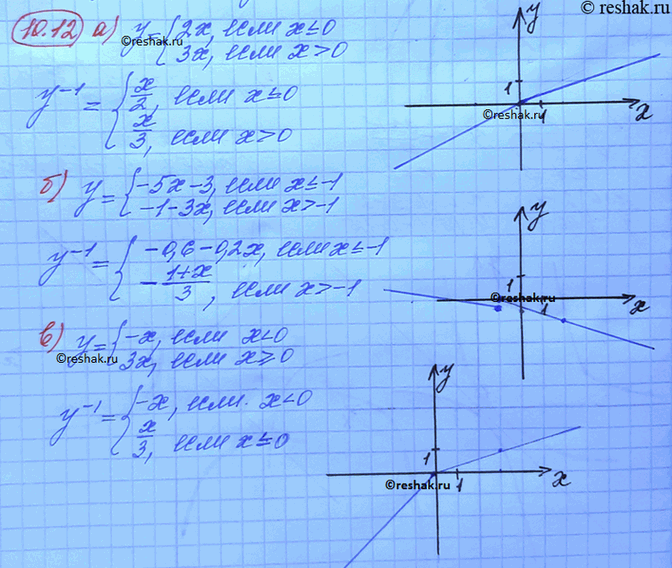 © reshak.ru
10.12) а) y = { 2x, если x ≤ 0
3x, если x > 0
©reshak.ru
y⁻¹ = { x/2, если x ≤ 0
x/3, если x > 0
y
1
©reshak.ru
1
x
б) y = { -5x-3, если x ≤ -1
-1-3x, если x > -1
y⁻¹ = { -0,6-0,2x, если x ≤ -1
-(1+x)/3, если x > -1
y
1
©reshak.ru
1
x
в) y = { -x, если x < 0
3x, если x ≥ 0
©reshak.ru
y⁻¹ = { -x, если x < 0
x/3, если x ≤ 0
y
1
©reshak.ru
1
x